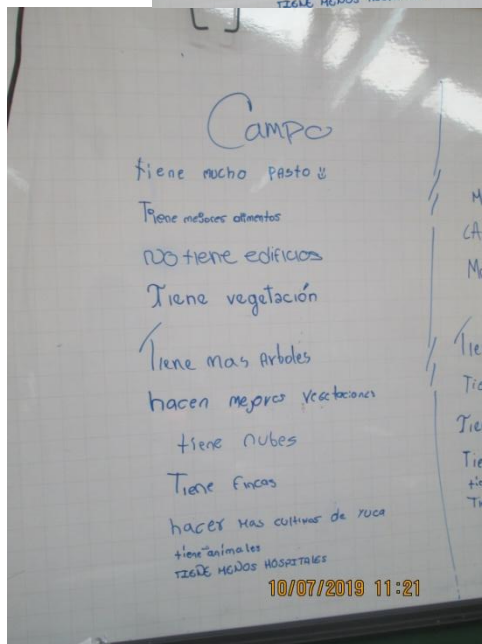 TIENE MENOS
Campo
tiene mucho Pasto
Tiene mejores alimentos
NO tiene edificios
Tiene vegetación
Tiene mas Arboles
hacen mejores vegetaciones
tiene nubes
Tiene Fincas
hacer mas cultivos de Yuca
tiene animales
TIENE MENOS HOSPITALES
M
CA
Tie
Tie
Tie
Tie
10/07/2019 11:21